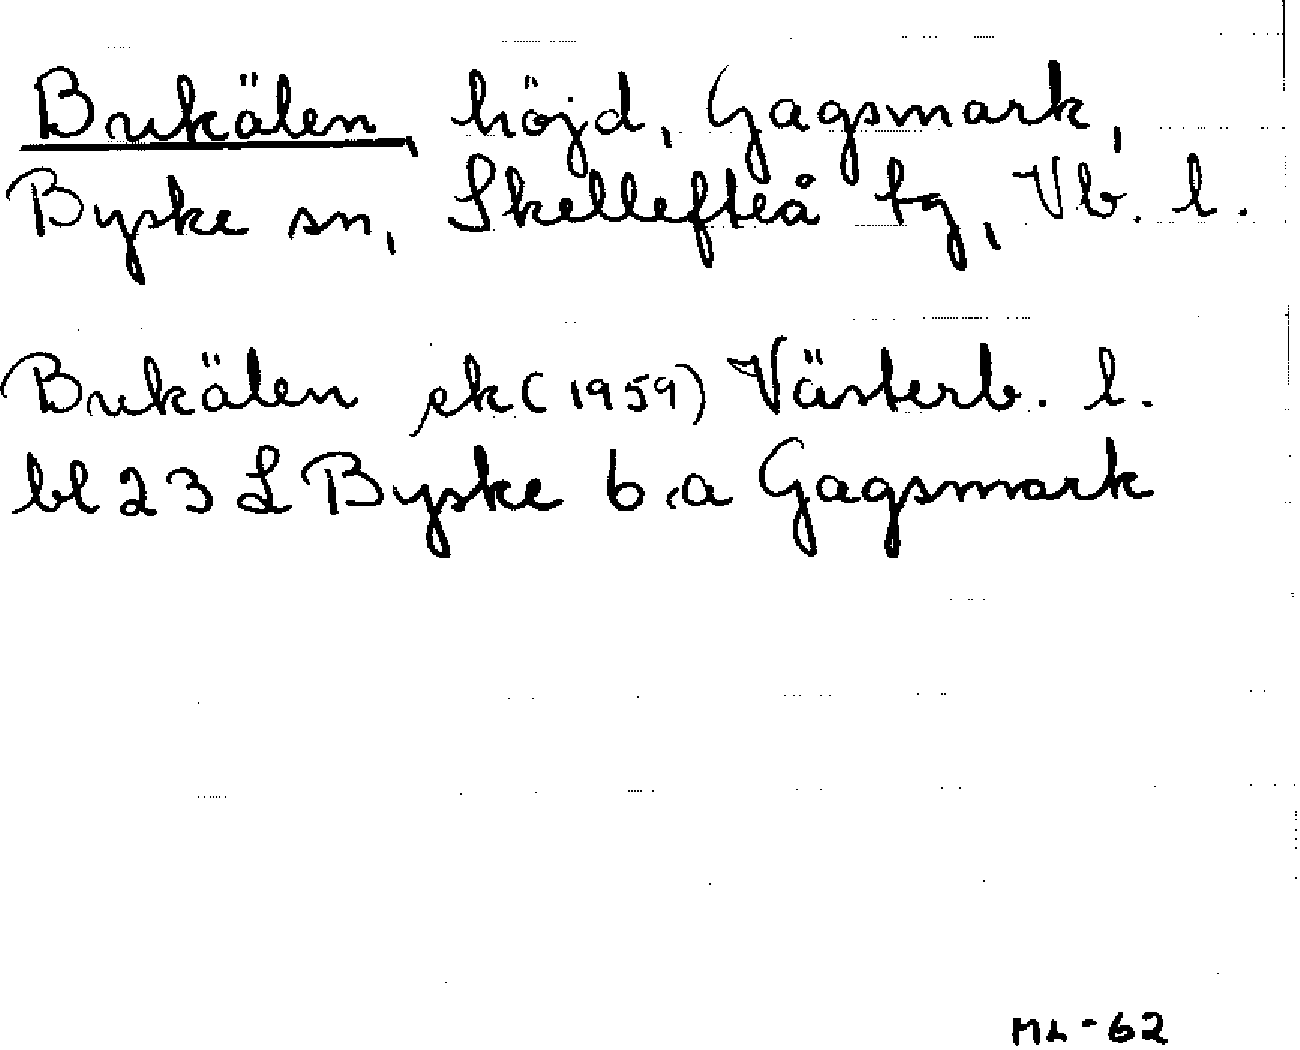 Brukälen, höjd, Gagsmark,
Byske sn, Skellefteå tg, Vb. l.
Brukälen ek (1959) Västerb. l.
bl 23 L Byske b.a Gagsmark
ML-62